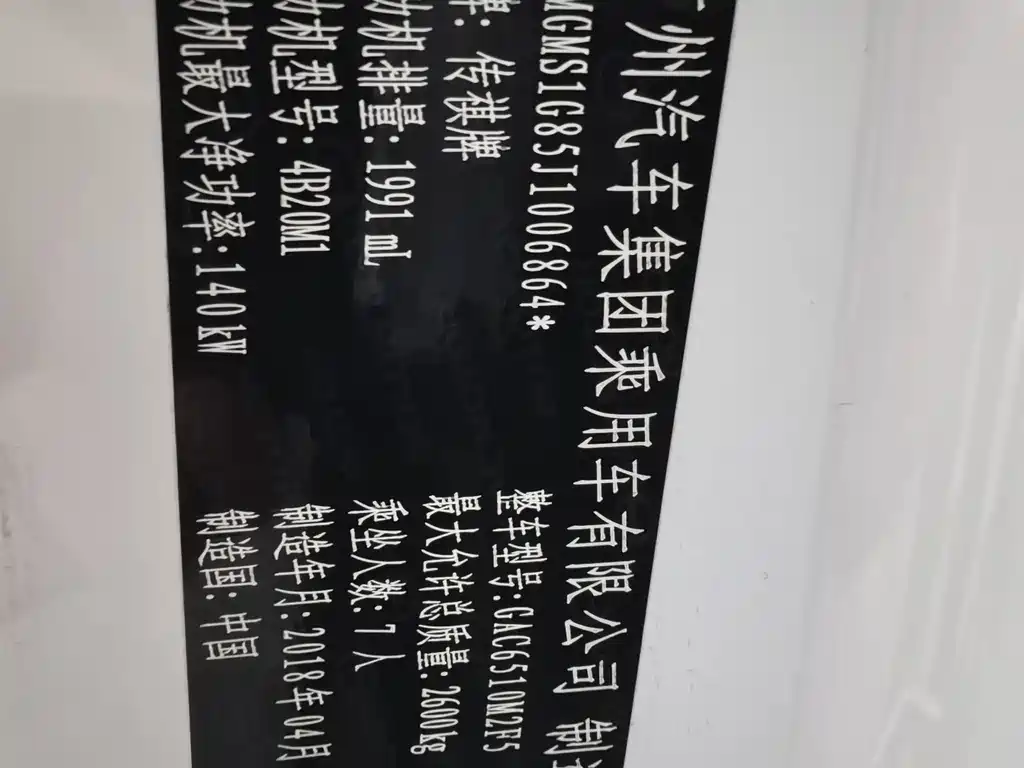 州汽车集团乘用车有限公司 制
MGMS1G85J1006864*
牌: 传祺牌
整车型号:GAC6510M2F5
动机排量:1991 mL
最大允许总质量:2600kg
动机型号:4B20M1
乘坐人数:7人
动机最大净功率:140kW
制造年月:2018年04月
制造国:中国